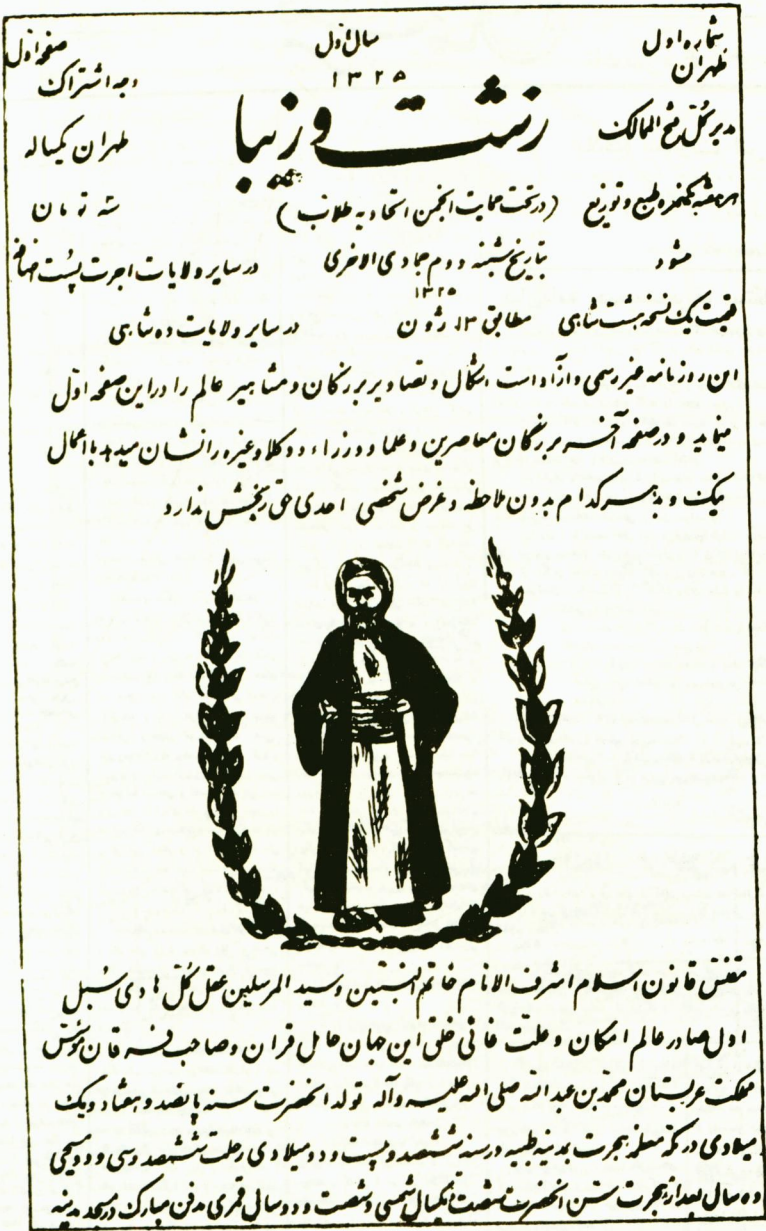 شماره اول سال اول صفحه اول
طهران ۱۳۲۵ وجه اشتراک
زشت و زیبا
مدیر کل فتح الممالک طهران یکساله
هر هفته یکنمره طبع و توزیع (در تحت حمایت انجمن اتحادیه طلاب) سه تومان
میشود بتاریخ شنبه دوم جمادی الاخری در سایر ولایات اجرت پست اضافه
۱۳۲۵
قیمت یک نسخه هشت شاهی مطابق ۱۳ ژون در سایر ولایات ده شاهی
این روزنامه غیر رسمی و آزاد است اشکال و تصاویر بزرگان و مشاهیر عالم را در این صفحه اول
مینماید و در صفحه آخر بزرگان معاصرین و علما و وزراء و وکلا و غیره را نشان میدهد با اعمال
نیک و بد هر کدام بدون ملاحظه و غرض شخصی احدی حق رنجش ندارد
مقنن قانون اسلام اشرف الانام خاتم النبیین و سید المرسلین عقل کل هادی سبل
اول صادر عالم امکان و علت غائی خلق این جهان حامل قران و صاحب فرقان مؤسس
مملکت عربستان محمد بن عبدالله صلی الله علیه وآله تولد انحضرت سنه پانصد و هفتاد و یک
میلادی در مکه معظمه هجرت بمدینه طیبه در سنه ششصد و بیست و دو میلادی رحلت ششصد و سی و دو مسیحی
و ده سال بعد از هجرت سن انحضرت شصت و یکسال شمسی و شصت و دو سال قمری مدفن مبارک در مسجد مدینه